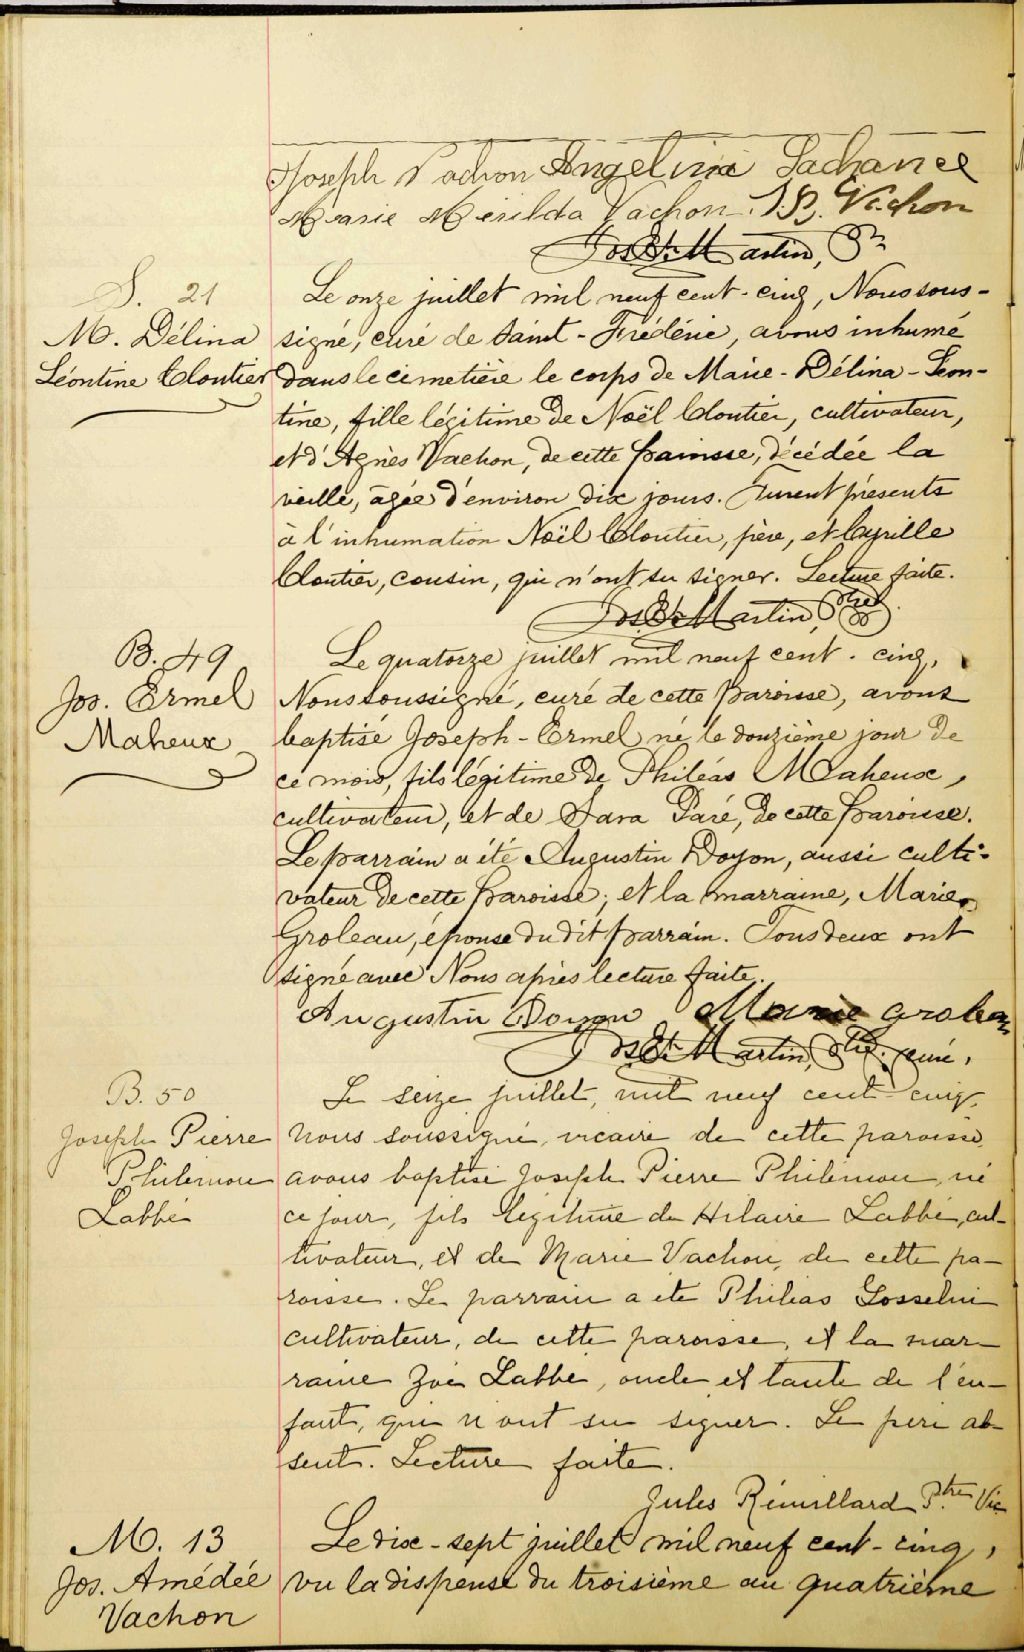 Joseph Vachon Angelina Lachance
Marie Merilda Vachon. J.B. Vachon
Jos. Et. Martin, Ptre
S. 21
M. Délina
Léontine Cloutier
Le onze juillet mil neuf cent-cinq, Nous sous-
signé, curé de Saint-Frédéric, avons inhumé
dans le cimetière le corps de Marie-Délina-Léon-
tine, fille légitime de Noël Cloutier, cultivateur,
et d'Agnès Vachon, de cette paroisse, décédée la
veille, âgée d'environ dix jours. Furent présents
à l'inhumation Noël Cloutier, père, et Cyrille
Cloutier, cousin, qui n'ont su signer. Lecture faite.
Jos. Et. Martin, Ptre
B. 49
Jos. Ermel
Maheux
Le quatorze juillet mil neuf cent-cinq,
Nous soussigné, curé de cette paroisse, avons
baptisé Joseph-Ermel né le douzième jour de
ce mois, fils légitime de Philéas Maheux,
cultivateur, et de Sara Paré, de cette paroisse.
Le parrain a été Augustin Doyon, aussi culti-
vateur de cette paroisse; et la marraine, Marie
Groleau, épouse du dit parrain. Tous deux ont
signé avec Nous après lecture faite.
Augustin Doyon Marie Groleau
Jos. Et. Martin, Ptre. curé.
B. 50
Joseph Pierre
Philemon
Labbé
Le seize juillet, mil neuf cent cinq,
nous soussigné, vicaire de cette paroisse,
avons baptisé Joseph Pierre Philemon, né
ce jour, fils légitime de Hilaire Labbé, cul-
tivateur, et de Marie Vachon, de cette pa-
roisse. Le parrain a été Philias Gosselin
cultivateur, de cette paroisse, et la mar-
raine Zoé Labbé, oncle et tante de l'en-
fant, qui n'ont su signer. Le père ab-
sent. Lecture faite.
Jules Rémillard Ptre Vic
M. 13
Jos. Amédée
Vachon
Le dix-sept juillet mil neuf cent-cinq,
vu la dispense du troisième au quatrième